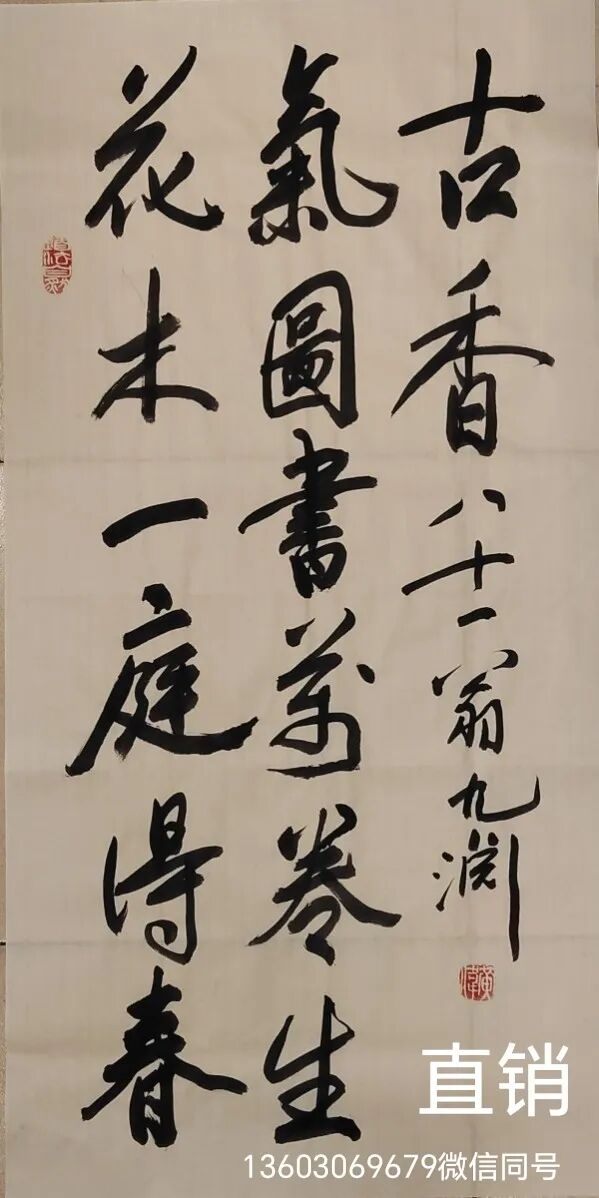 花木一庭得春
氣圖書萬卷生
古香八十一翁九渊
直销
13603069679微信同号